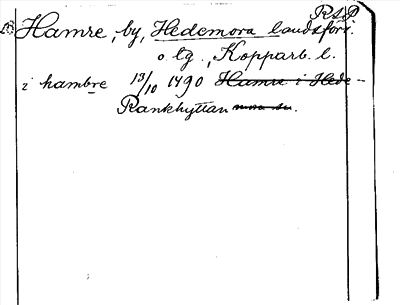 R s P
Hamre, by, Hedemora landsförs.
o tg., Kopparb. l.
i hambre 13/10 1490 Hamre i Hede-
Rankhyttan mora sn.